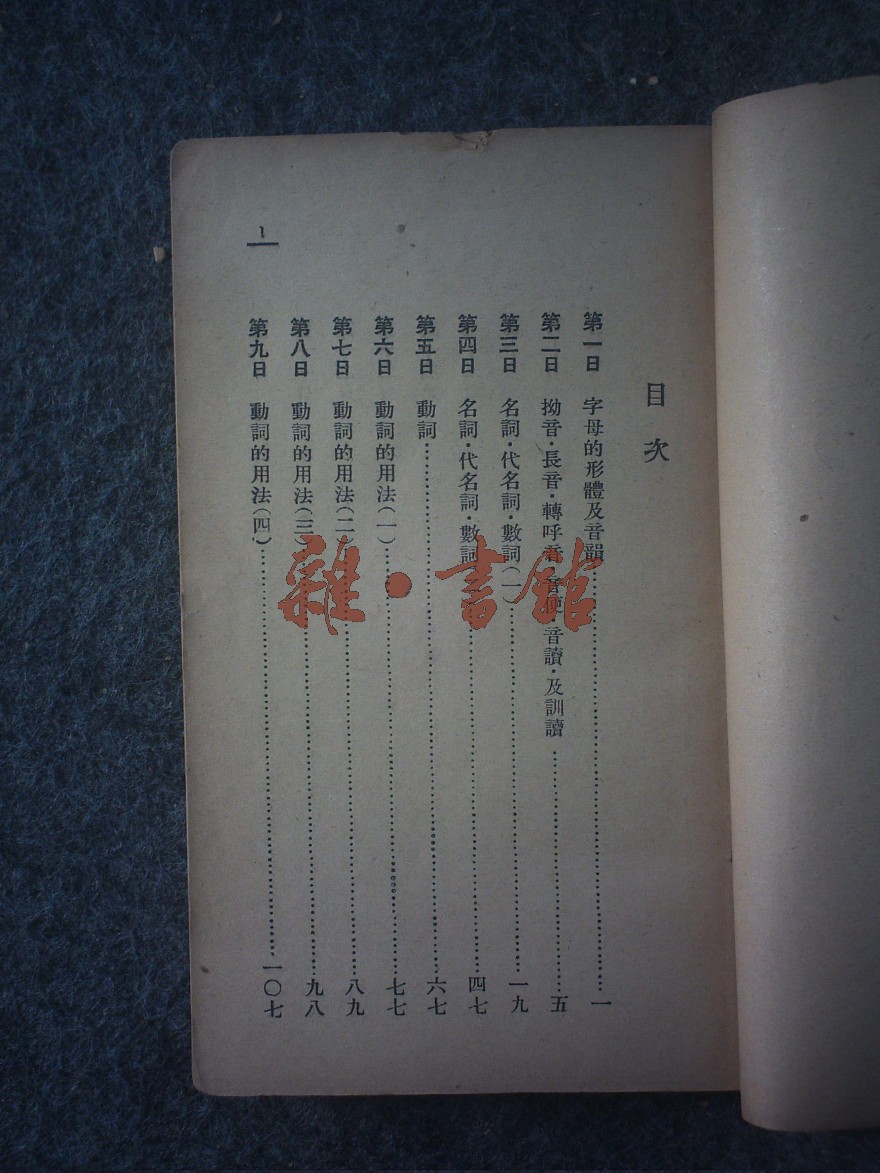 目次
第一日 字母的形體及音韻……一
第二日 拗音·長音·轉呼音·音便·音讀·及訓讀……五
第三日 名詞·代名詞·數詞(一)……一九
第四日 名詞·代名詞·數詞……四七
第五日 動詞……六七
第六日 動詞的用法(一)……七七
第七日 動詞的用法(二)……八九
第八日 動詞的用法(三)……九八
第九日 動詞的用法(四)……一〇七
1
雜·書館